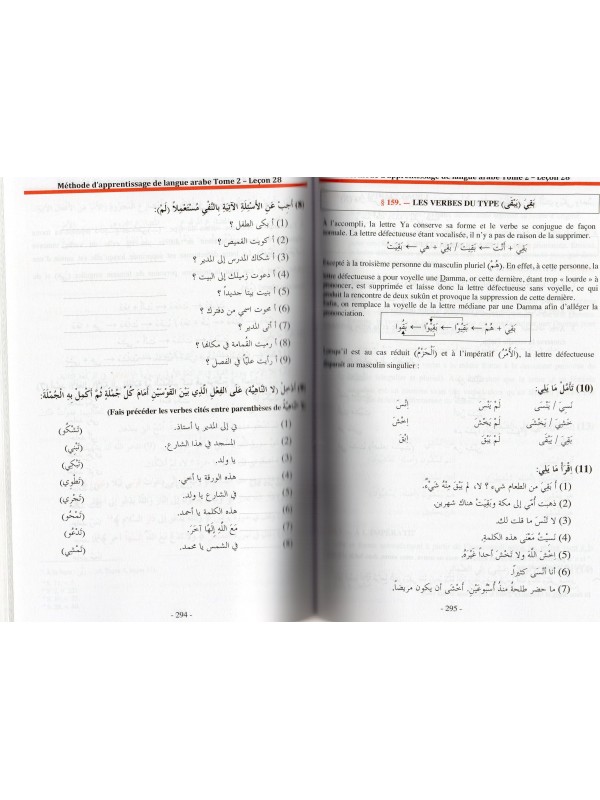 Méthode d'apprentissage de langue arabe Tome 2 – Leçon 28
(8) أَجِبْ عَنِ الأَسْئِلَةِ الآتِيَةِ بِالنَّفْيِ مُسْتَعْمِلاً (لَمْ):
(1) أبكى الطفل ؟
(2) أ كويت القميص ؟
(3) أ شكاك المدرس إلى المدير ؟
(4) أ دعوت زميلك إلى البيت ؟
(5) أ بنيت بيتا جديداً ؟
(6) أ محوت اسمي من دفترك ؟
(7) أ أتى المدير ؟
(8) أ رميت القمامة في مكانها ؟
(9) أ رأيت عليّاً في الفصل ؟
(لا النَّاهِيَة) عَلَى الفِعْلِ الَّذِي بَيْنَ القَوْسَيْنِ أَمَامَ كُلِّ جُمْلَةٍ ثُمَّ أَكْمِلْ بِهِ الْجُمْلَةَ:
(Fais précéder les verbes cités entre parenthèses de
(1) ............ ني إلى المدير يا أستاذ. (تَشْكُو)
(2) ............ المسجد في هذا الشارع. (تَبْنِي)
(3) ............ يا ولد. (تَبْكِي)
(4) ............ هذه الورقة يا أخي. (تَطْوِي)
(5) ............ في الشارع يا ولد. (تَجْرِي)
(6) ............ هذه الكلمة يا أحمد. (تَمْحُو)
(7) ............ مَعَ اللَّهِ إِلَهًا آخَرَ. (تَدْعُو)
(8) ............ في الشمس يا محمد. (تَمْشِي)
- 294 -
d'apprentissage de langue arabe Tome 2 – Leçon 28
§ 159. — LES VERBES DU TYPE (يَبْقَى) بَقِيَ
A l'accompli, la lettre Ya conserve sa forme et le verbe se conjugue de façon
normale. La lettre défectueuse étant vocalisée, il n'y a pas de raison de la supprimer.
بَقِيَ + أَنْتَ ← بَقِيتَ / بَقِيَ + هي ← بَقِيَتْ
Excepté à la troisième personne du masculin pluriel (هُمْ). En effet, à cette personne, la
lettre défectueuse a pour voyelle une Damma, or cette dernière, étant trop « lourde » à
prononcer, est supprimée et laisse donc la lettre défectueuse sans voyelle, ce qui
produit la rencontre de deux sukûn et provoque la suppression de cette dernière.
Enfin, on remplace la voyelle de la lettre médiane par une Damma afin d'alléger la
prononciation.
بَقِيَ + هُمْ ← بَقِيُوا ← بَقِيْوْا ← بَقُوا
Lorsqu'il est au cas réduit (الْجَزْمُ) et à l'impératif (الأَمْرُ), la lettre défectueuse
disparaît au masculin singulier :
(10) تَأَمَّلْ مَا يَلِي:
نَسِيَ / يَنْسَى لَمْ يَنْسَ اِنْسَ
خَشِيَ / يَخْشَى لَمْ يَخْشَ اِخْشَ
بَقِيَ / يَبْقَى لَمْ يَبْقَ اِبْقَ
(11) اِقْرَأْ مَا يَلِي:
(1) أ بَقِيَ من الطعام شيء ؟ لا، لم يَبْقَ مِنْهُ شَيْءٌ.
(2) ذهبت أُمِّي إلى مكة وبَقِيَتْ هناك شهرين.
(3) لا تَنْسَ ما قلت لك.
(4) نَسِيْتُ مَعْنَى هذه الكلمةِ.
(5) اِخْشَ اللَّهَ ولا تَخْشَ أحداً غَيْرَهُ.
(6) أنا أَنْسَى كثيراً.
(7) ما حضر طلحةُ منذُ أُسْبُوعَيْنِ. أَخْشَى أن يكون مريضاً.
- 295 -